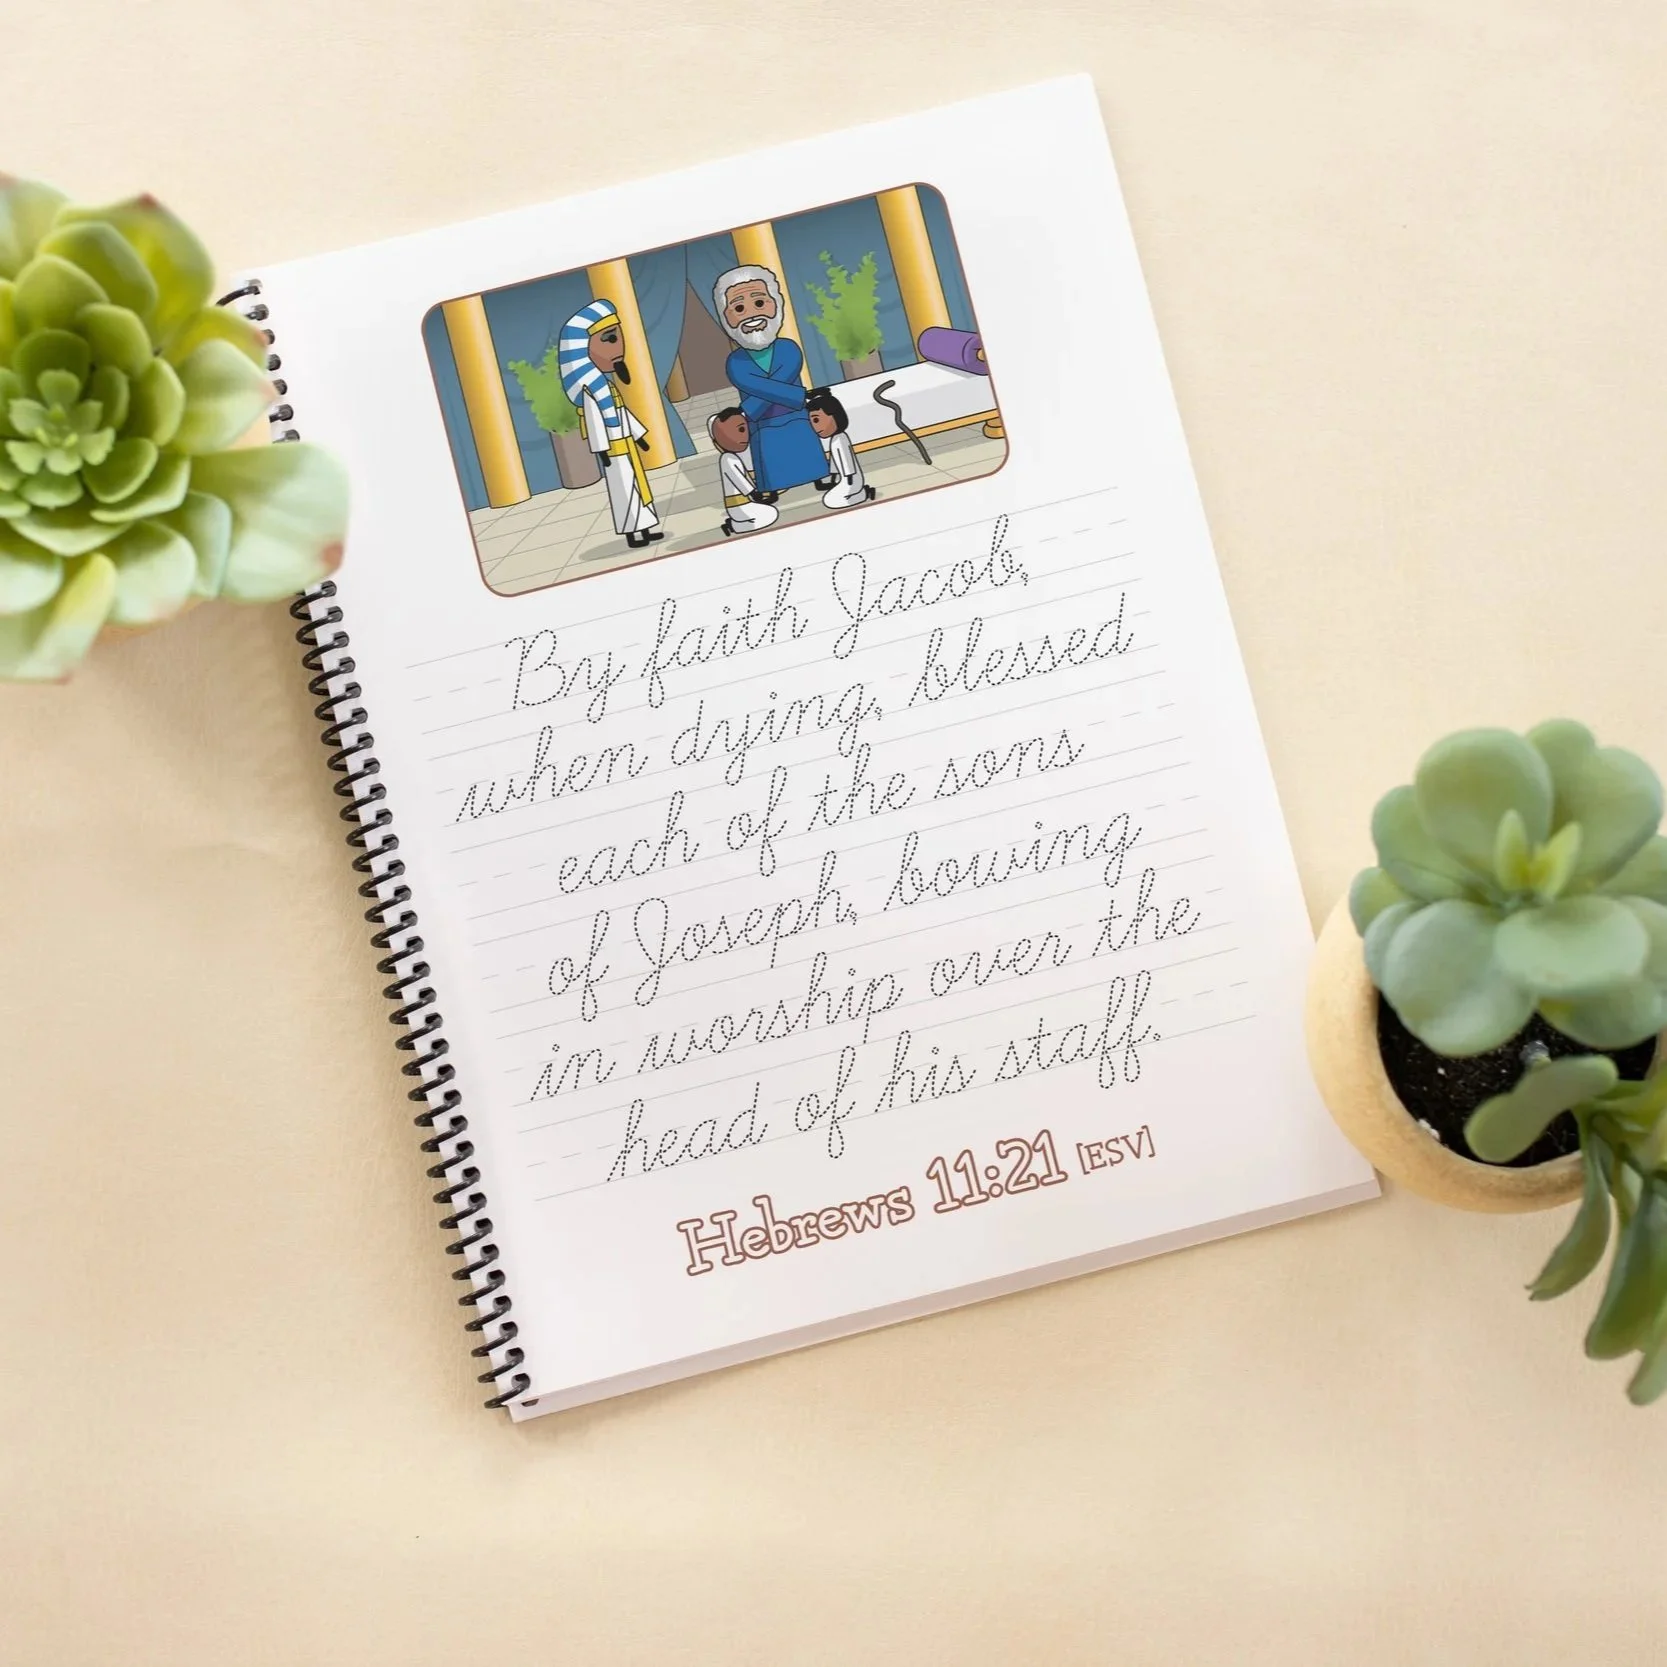 By faith Jacob,
when dying, blessed
each of the sons
of Joseph, bowing
in worship over the
head of his staff.
Hebrews 11:21 [ESV]